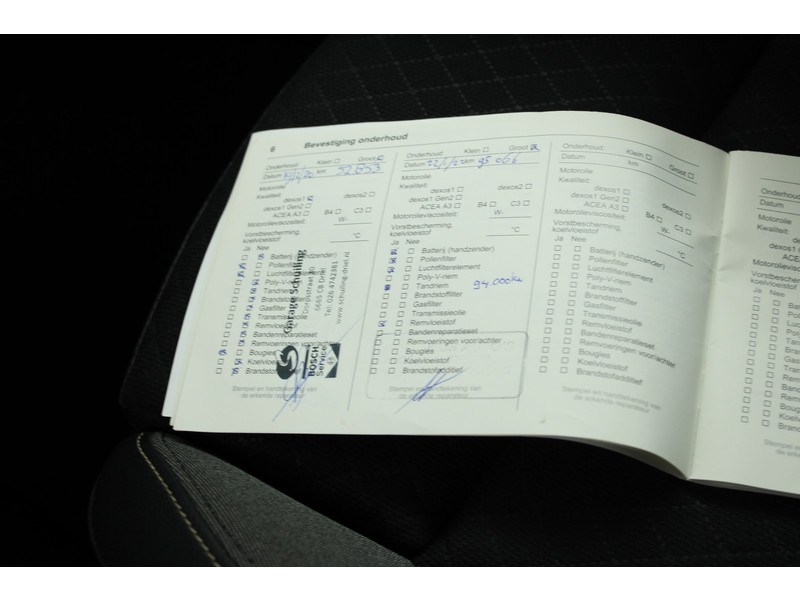 6 Bevestiging onderhoud
Onderhoud: Klein Groot
Datum km 52653
Motorolie
Kwaliteit: dexos1 dexos2
dexos1 Gen2
ACEA A3 B4 C3
Motorolieviscositeit: W-
Vorstbescherming, koelvloeistof °C
Ja Nee
Batterij (handzender)
Pollenfilter
Luchtfilterelement
Poly-V-riem
Tandriem
Brandstoffilter
Gasfilter
Transmissieolie
Remvloeistof
Bandenreparatieset
Remvoeringen voor/achter
Bougies
Koelvloeistof
Brandstof
Stempel en handtekening van
de erkende reparateur
Garage Schuiling
6665 CB Driel
Tel: 026 4742381
www.schuiling-driel.nl
BOSCH
Service
Onderhoud: Klein Groot
Datum km 95066
Motorolie
Kwaliteit: dexos1 dexos2
dexos1 Gen2
ACEA A3 B4 C3
Motorolieviscositeit: W-
Vorstbescherming,
koelvloeistof °C
Ja Nee
Batterij (handzender)
Pollenfilter
Luchtfilterelement
Poly-V-riem
Tandriem 94.000km
Brandstoffilter
Gasfilter
Transmissieolie
Remvloeistof
Bandenreparatieset
Remvoeringen voor/achter
Bougies
Koelvloeistof
Brandstofadditief
Stempel en handtekening van
de erkende reparateur
Onderhoud: Klein Groot
Datum km
Motorolie
Kwaliteit: dexos1 dexos2
dexos1 Gen2
ACEA A3 B4 C3
Motorolieviscositeit: W-
Vorstbescherming,
koelvloeistof °C
Ja Nee
Batterij (handzender)
Pollenfilter
Luchtfilterelement
Poly-V-riem
Tandriem
Brandstoffilter
Gasfilter
Transmissieolie
Remvloeistof
Bandenreparatieset
Remvoeringen voor/achter
Bougies
Koelvloeistof
Brandstofadditief
Stempel en handtekening van
de erkende reparateur
Onderhoud
Datum
Motorolie
Kwaliteit:
dexos1
ACEA
Motorolievis
Vorstbescherm
koelvloeistof
Ja Nee
Batte
Polle
Luch
Poly
Tand
Bran
Gasf
Tran
Remv
Band
Remv
Boug
Koelv
Brand
Stempel en
de erkende